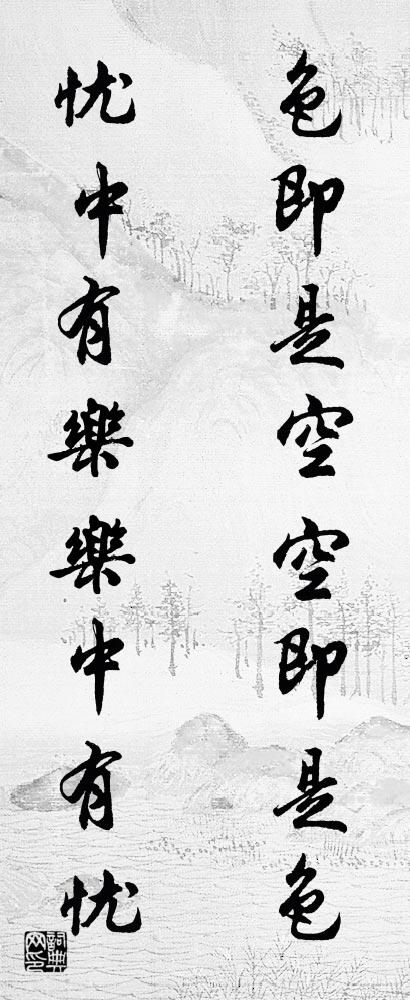 色即是空空即是色
忧中有樂樂中有忧
詞典
网印